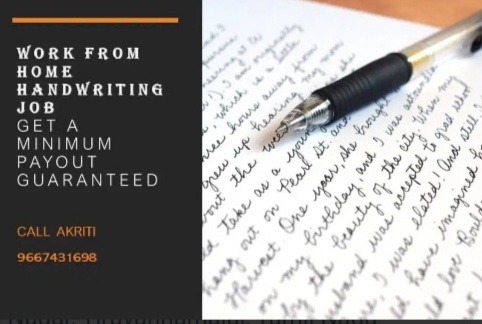 WORK FROM
HOME
HANDWRITING
JOB
GET A
MINIMUM
PAYOUT
GUARANTEED
CALL AKRITI
9667431698
I am originally
which is a little
hours away from
grew up hearing my mom
about the
ld take as a young
hang out on Pearl St. and
Harvest. One year, she bought
on my birthday and I was
by the beauty of the city. When my
husband was accepted to grad school
, I was elated! And still
ld have imagined
ld love